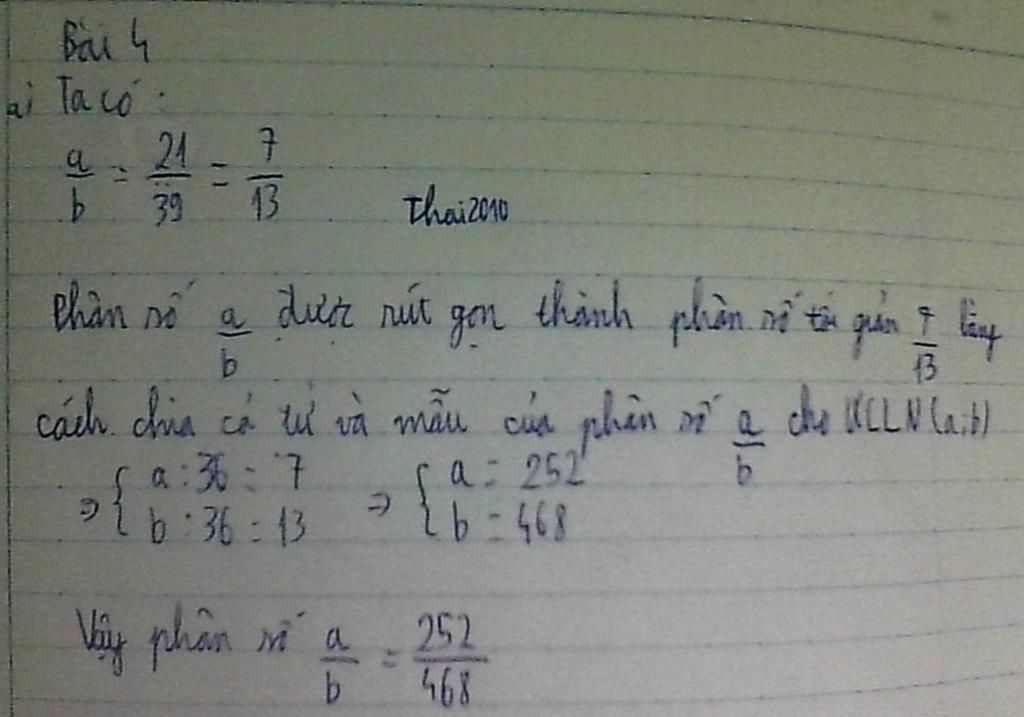 Bài 4
a) Ta có :
a/b = 21/39 = 7/13
Thai2010
Phân số a/b được rút gọn thành phân số tối giản 7/13 bằng
cách chia cả tử và mẫu của phân số a/b cho ƯCLN(a;b)
⇒ { a : 36 = 7 ⇒ { a = 252
b : 36 = 13 b = 468
Vậy phân số a/b = 252/468